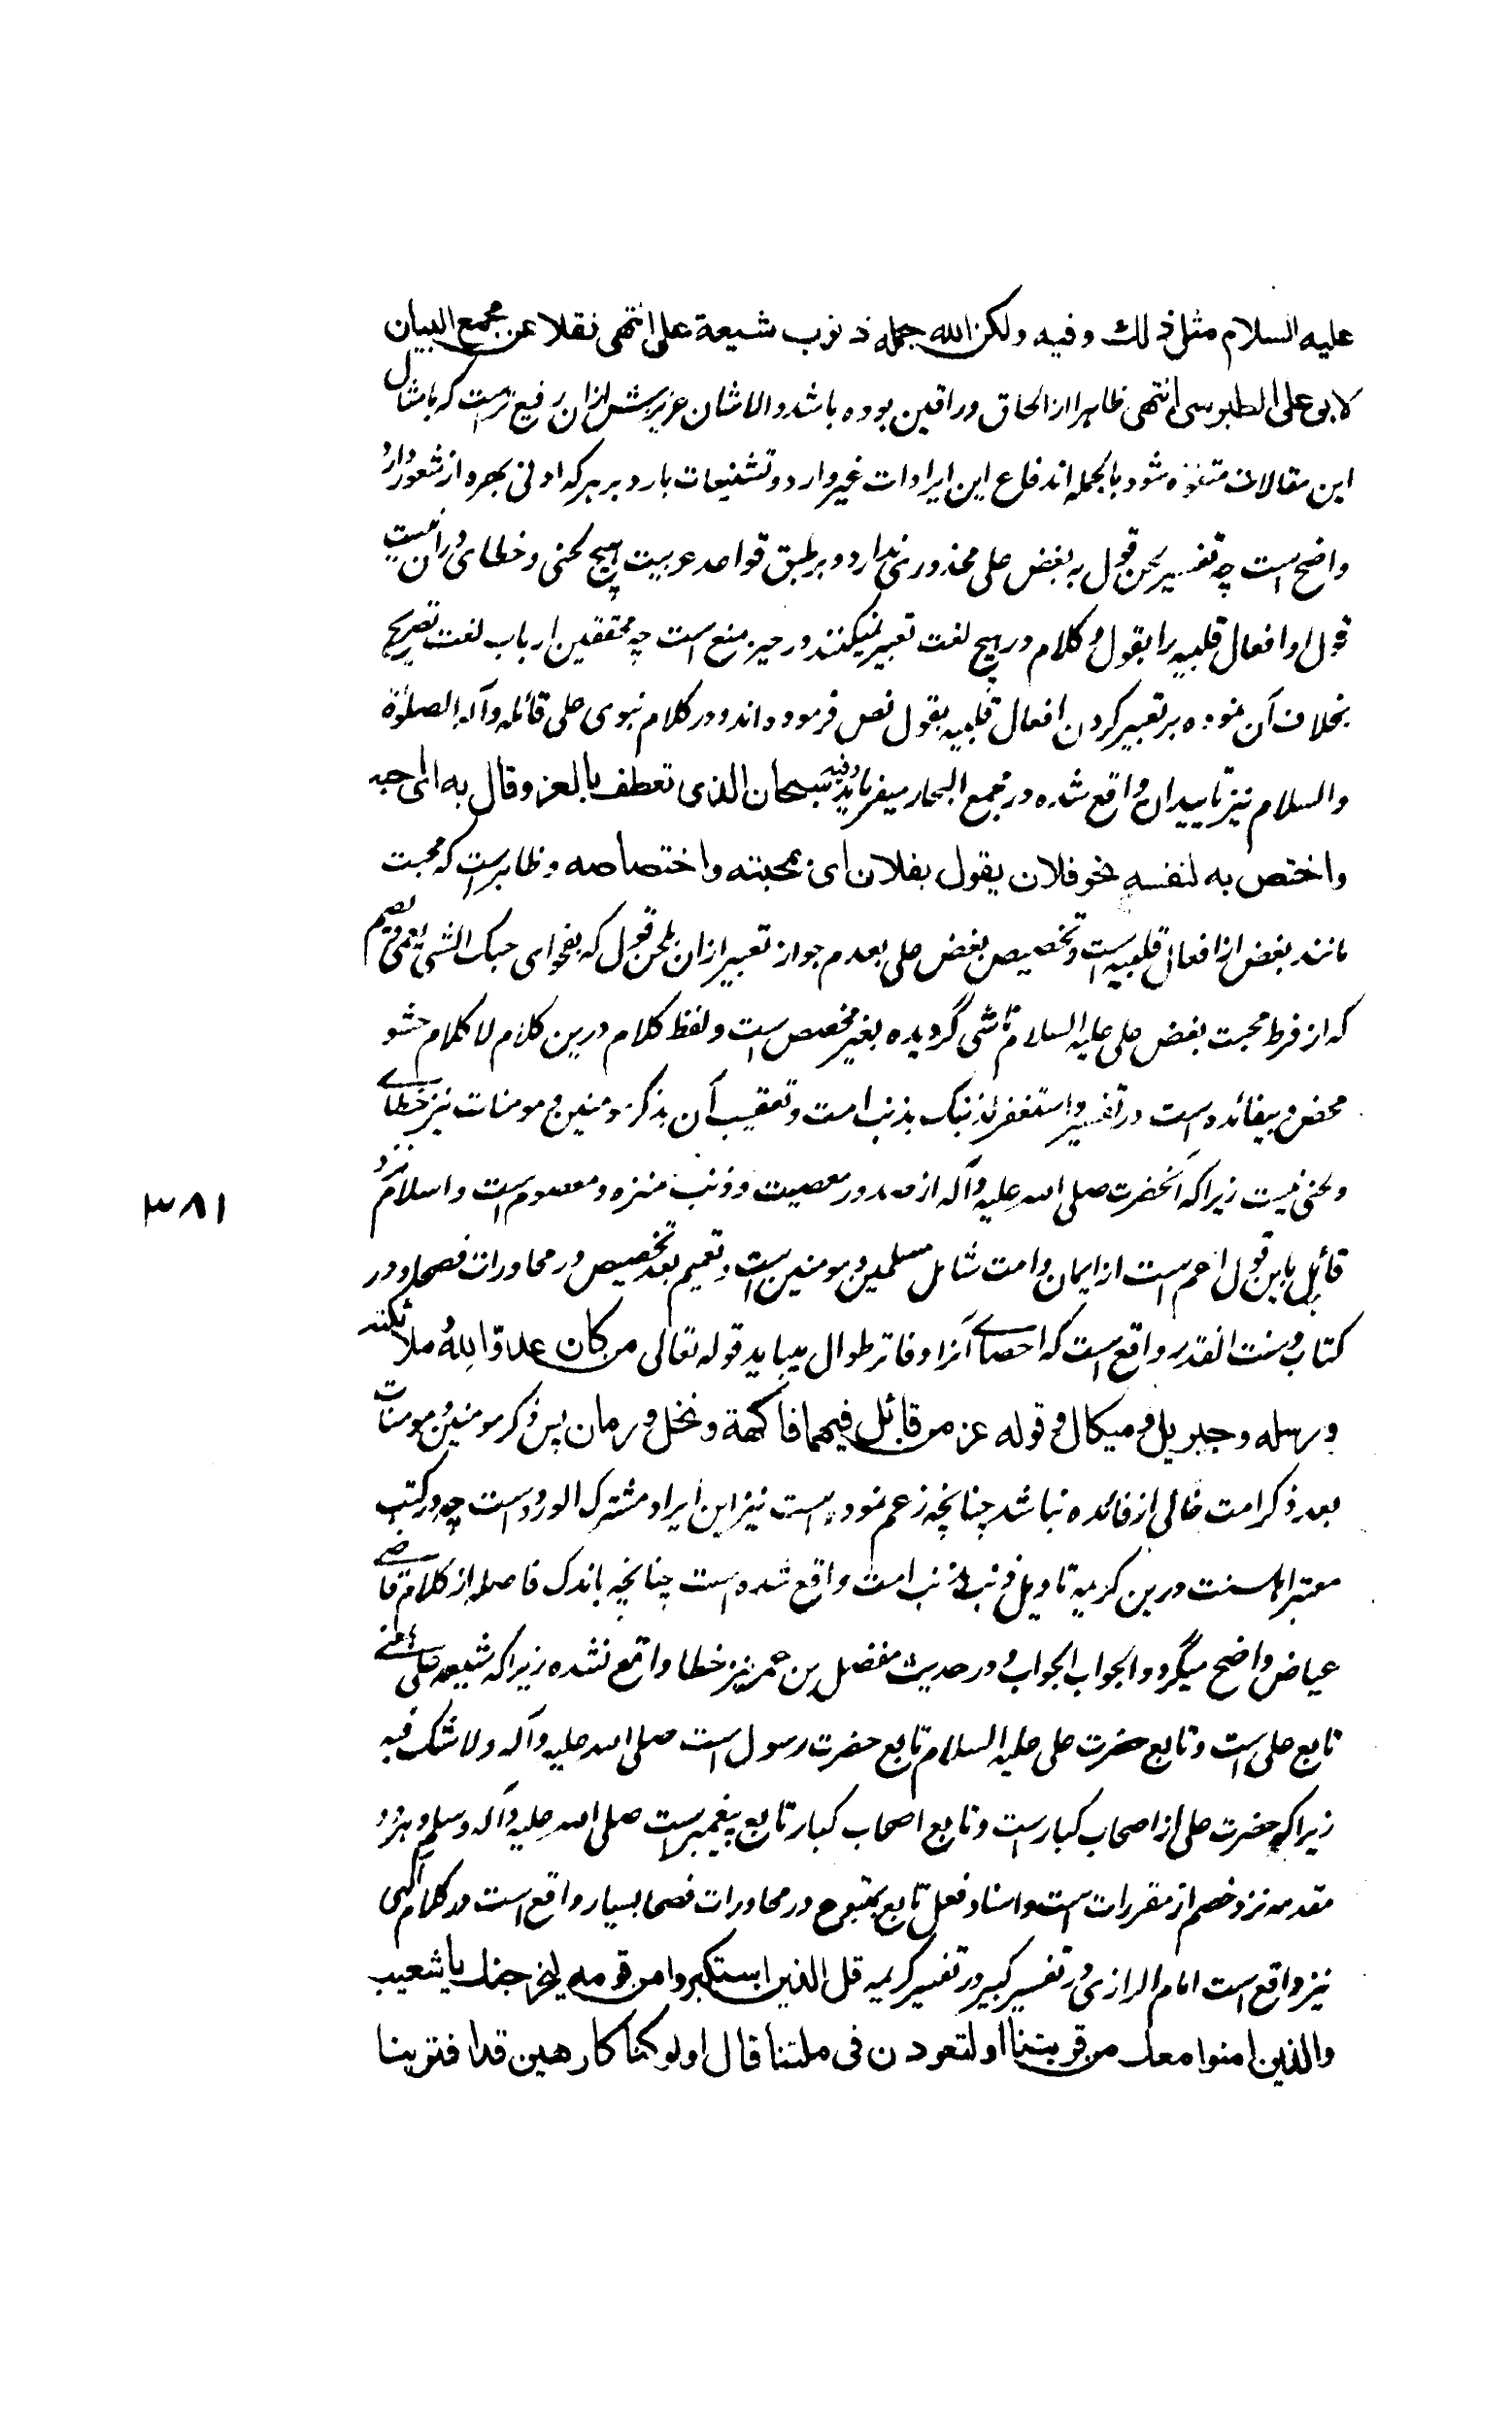 علیه السلام مثل ذلك وفیه ولكن الله حمله ذنوب شیعة علی انتهی نقلا عن مجمع البیان
لابی علی الطبرسی انتهی ظاهرا از الحاق وراقین بوده باشد والا شان عزیزش ازان رفیع ترست که بامثال
این مقالات متفوه شود بالجمله اندفاع این ایرادات غیر وارد و تشنیعات بارد بر هر که ادنی بهره از شعور دارد
واضح است چه تفسیر لحن قول به بغض علی محذوری ندارد و بر طبق قواعد عربیت هیچ لحنی و خطای در ان نیست
قول او افعال قلبیه را بقول و کلام در هیچ لغت تعبیر نمیکنند در حیز منع است چه محققین ارباب لغت تصریح
بخلاف آن نموده بر تعبیر کردن افعال قلبیه بقول نص فرموده اند و در کلام نبوی علی قائله وآله الصلوة
والسلام نیز تایید ان واقع شده در مجمع البحار میفرماید وفیه سبحان الذی تعطف بالعز وقال به ای احبه
واختص به لنفسه نحو فلان یقول بفلان ای بمحبته واختصاصه و ظاهرست که محبت
مانند بغض از افعال قلبیه است و تخصیص بغض علی بعدم جواز تعبیر ازان بلحن قول که بفحوای حبك الشیء یعمی ویصم
که از فرط محبت بغض علی علیه السلام ناشی گردیده بغیر مخصص است و لفظ کلام درین کلام لا کلام حشو
محض و بیفائده است در تفسیر واستغفر لذنبک بذنب امت و تعقیب آن بذکر مومنین و مومنات نیز خطاے
و لحنی نیست زیرا که آنحضرت صلی الله علیه وآله از صدور معصیت و ذنب منزه و معصوم است و اسلام نزد
قائل باین قول اعم است از ایمان و امت شامل مسلمین و مومنین است و تعمیم بعد تخصیص در محاورات فصحا و در
کتاب و سنت انقدر واقع است که احصاے آنرا دفاتر طوال میباید قوله تعالی من كان عدوا لله وملائكته
ورسله وجبریل ومیكال وقوله عز من قائل فیهما فاكهة ونخل ورمان پس ذکر مومنین و مومنات
بعد ذکر امت خالی از فائده نباشد چنانچه زعم نموده است نیز این ایراد مشترک الورود است چه در کتب
معتبر اهلسنت درین کریمه تاویل ذنب بذنب امت واقع شده است چنانچه باندک فاصله از کلام قاضے
عیاض واضح میگردد والجواب الجواب و در حدیث مفضل بن عمر نیز خطا واقع نشده زیرا که شیعه علی یعنے
تابع علی است و تابع حضرت علی علیه السلام تابع حضرت رسول است صلی الله علیه وآله ولا شک فیه
زیرا که حضرت علی از اصحاب کبار است و تابع اصحاب کبار تابع پیغمبر است صلی الله علیه وآله وسلم و هر دو
مقدمه نزد خصم از مقررات است و اسناد فعل تابع بمتبوع در محاورات فصحا بسیار واقع است در کلام الهی
نیز واقع است امام الرازی در تفسیر کبیر در تفسیر کریمه قل الذین استكبروا من قومه لنخرجنك یا شعیب
والذین امنوا معك من قریتنا او لتعودن فی ملتنا قال اولو كنا كارهین قد افترینا
۳۸۱